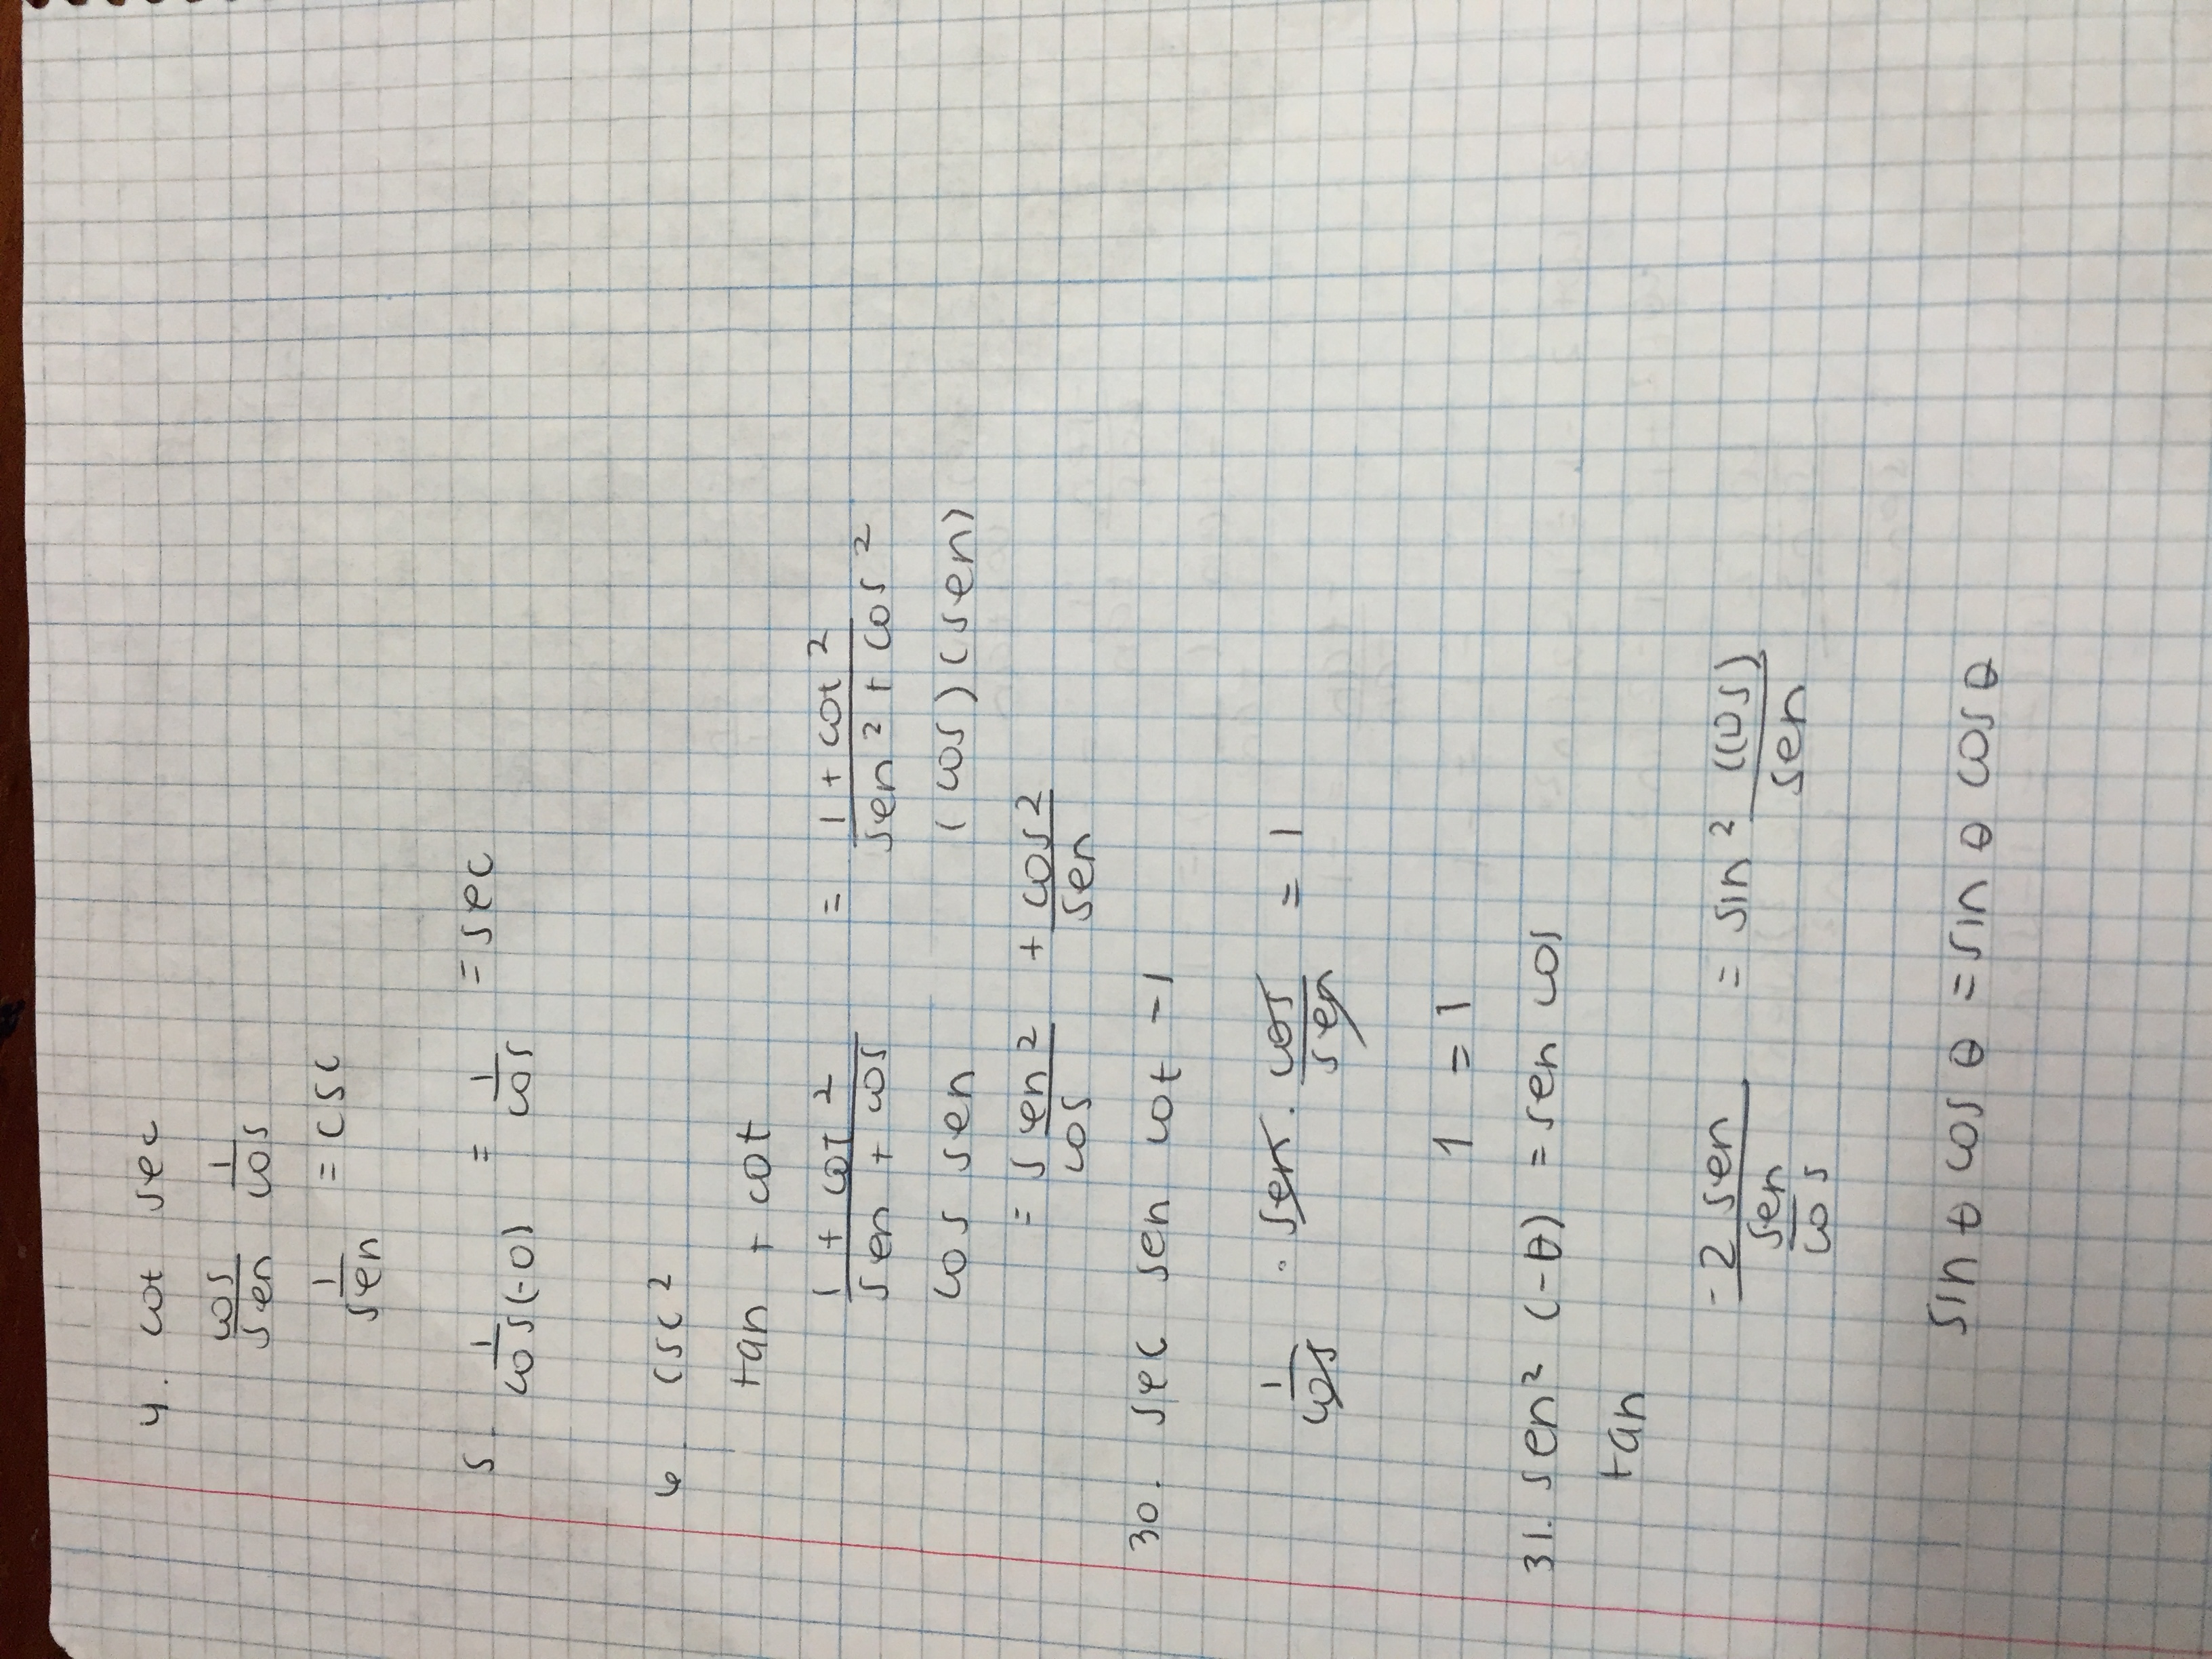 4. cot sec
cos/sen 1/cos
1/sen = csc
5. 1/cos(-0) = 1/cos = sec
6. csc 2
tan + cot
1 + cot 2 / sen + cos = 1 + cot 2 / sen 2 + cos 2
cos sen (cos)(sen)
= sen 2/cos + cos 2/sen
30. sec sen cot - 1
1/cos · sen · cos/sen = 1
1 = 1
31. sen² (-θ) = sen cos
tan
- 2 sen / sen/cos = sin² (cos)/sen
sin θ cos θ = sin θ cos θ